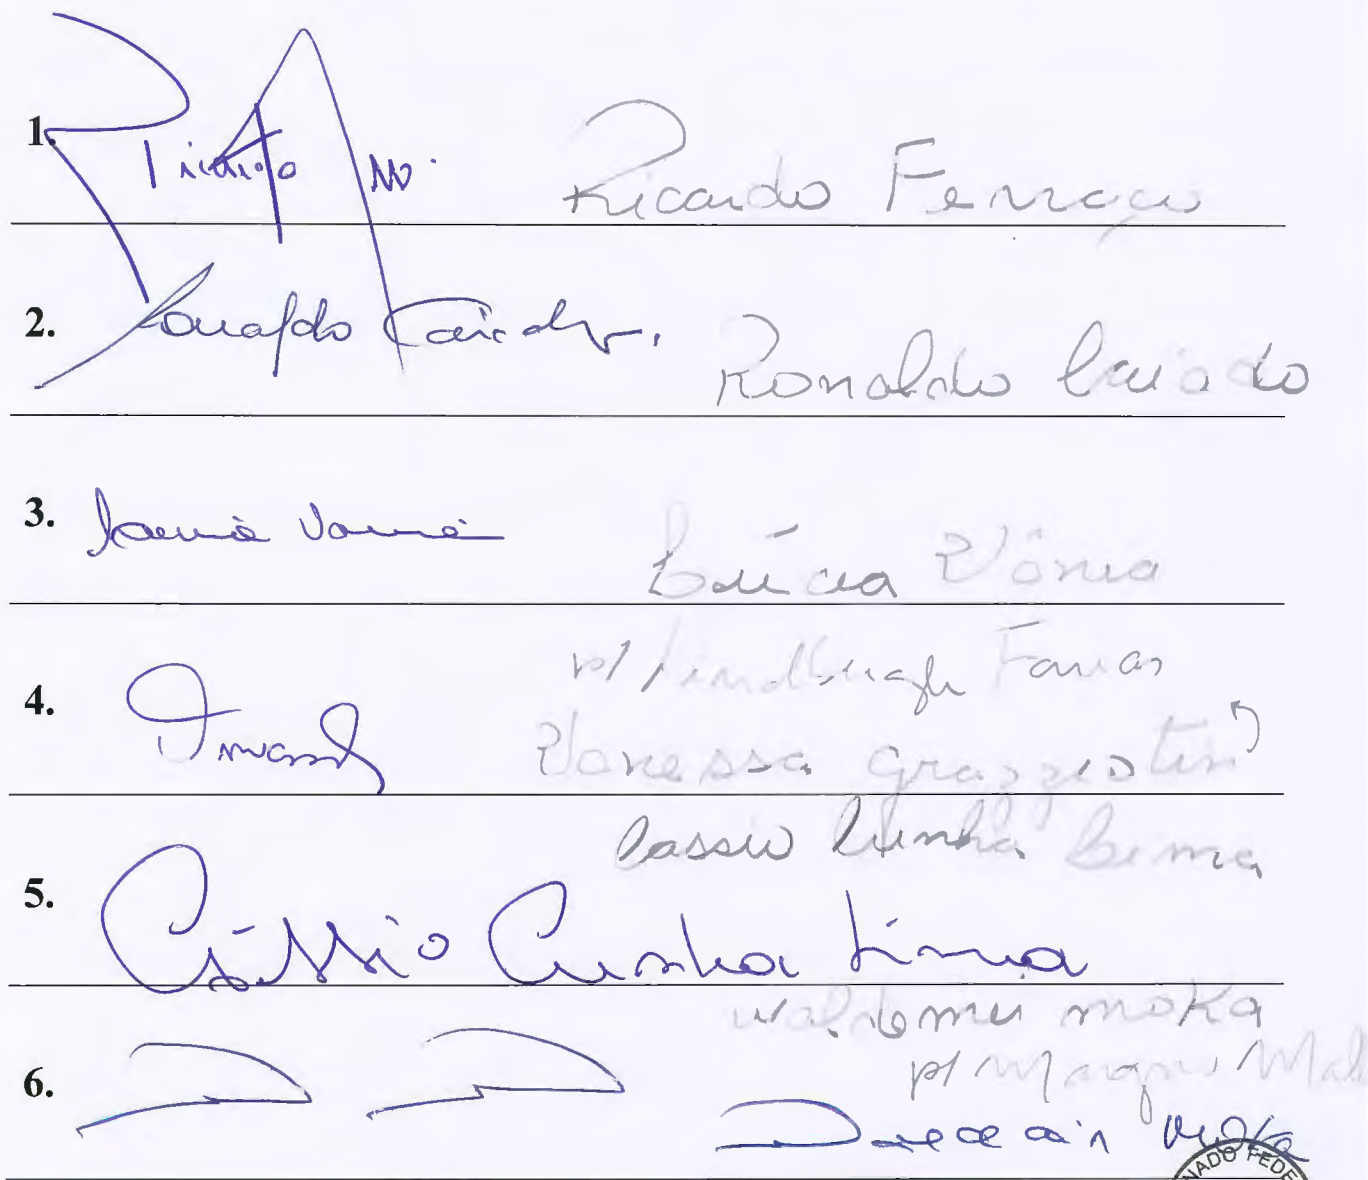 1. Ricardo
Ricardo Ferraço
2. Ronaldo Caiado.
Ronaldo Caiado
3. Lucia Vania
Lúcia Vânia
p/ Lindbergh Farias
4.
Vanessa Grazziotin
Cassio Cunha Lima
5. Cássio Cunha Lima
Waldemir Moka
p/ Magno Mal
6.
Moka
NADO FEDE